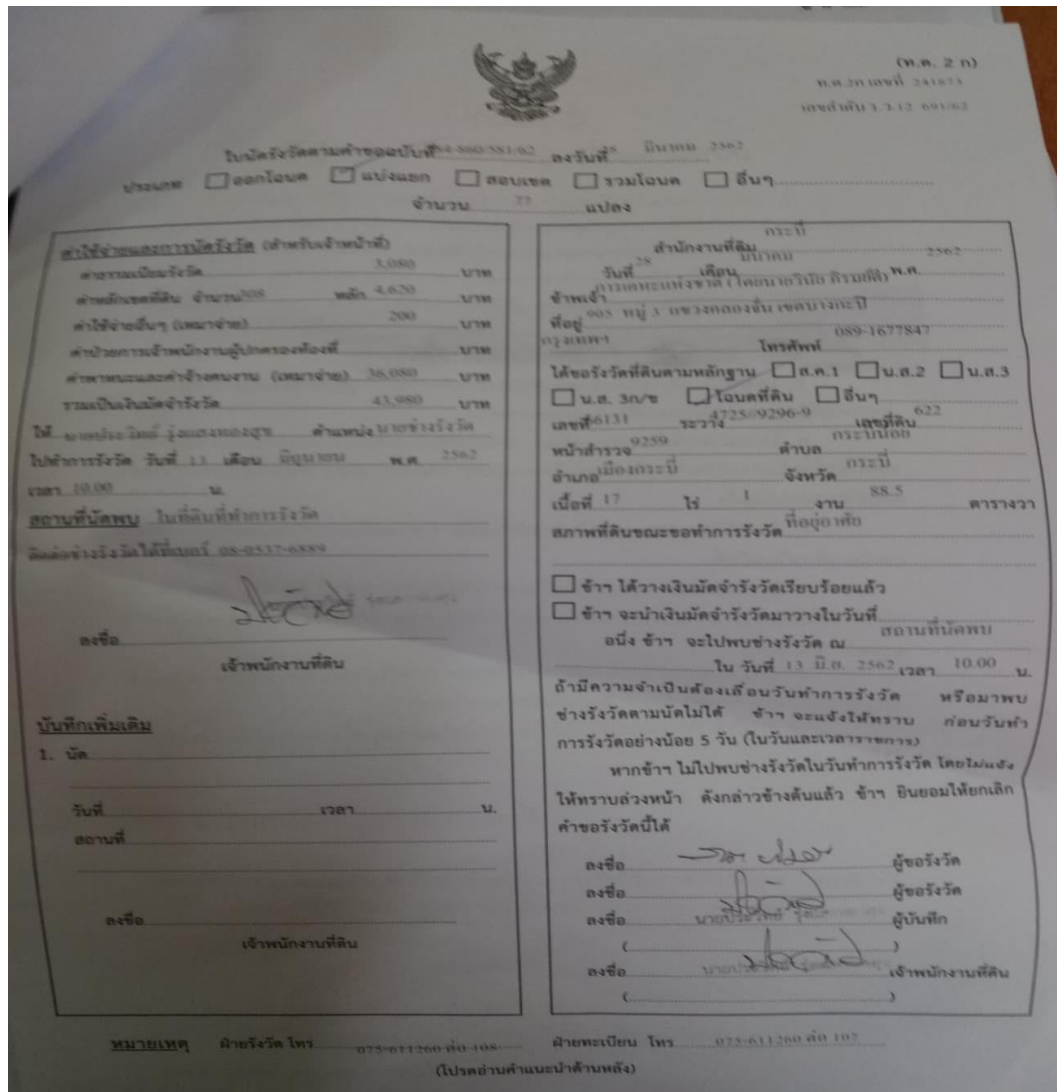 (ท.ด. 2 ก)
ท.ด.2ก เลขที่ 241873
เลขลำดับ ร.ว.12 691/62
ใบนัดรังวัดตามคำขอฉบับที่ ลงวันที่ มีนาคม 2562
ประเภท ออกโฉนด แบ่งแยก สอบเขต รวมโฉนด อื่นๆ
จำนวน 77 แปลง
ค่าใช้จ่ายและการนัดรังวัด (สำหรับเจ้าหน้าที่)
ค่าธรรมเนียมรังวัด 3,080 บาท
ค่าหลักเขตที่ดิน จำนวน 308 หลัก 4,620 บาท
ค่าใช้จ่ายอื่นๆ (เหมาจ่าย) 200 บาท
ค่าป่วยการเจ้าพนักงานผู้ปกครองท้องที่ บาท
ค่าพาหนะและค่าจ้างคนงาน (เหมาจ่าย) 36,080 บาท
รวมเป็นเงินมัดจำรังวัด 43,980 บาท
ให้ ตำแหน่ง นายช่างรังวัด
ไปทำการรังวัด วันที่ 13 เดือน มิถุนายน พ.ศ. 2562
เวลา 10.00 น.
สถานที่นัดพบ ในที่ดินที่ทำการรังวัด
ติดต่อช่างรังวัดได้ที่เบอร์ 08-0537-6889
ลงชื่อ
เจ้าพนักงานที่ดิน
บันทึกเพิ่มเติม
1. นัด
วันที่ เวลา น.
สถานที่
ลงชื่อ
เจ้าพนักงานที่ดิน
กระบี่
สำนักงานที่ดิน
วันที่ 28 เดือน มีนาคม พ.ศ. 2562
ข้าพเจ้า การเคหะแห่งชาติ
ที่อยู่ 905 หมู่ 3 แขวงคลองจั่น เขตบางกะปิ
กรุงเทพฯ โทรศัพท์ 089-1677847
ได้ขอรังวัดที่ดินตามหลักฐาน ส.ค.1 น.ส.2 น.ส.3
น.ส. 3ก/ข โฉนดที่ดิน อื่นๆ
เลขที่ 6131 ระวาง 4725 9296-9 เลขที่ดิน 622
หน้าสำรวจ 9259 ตำบล กระบี่น้อย
อำเภอ เมืองกระบี่ จังหวัด กระบี่
เนื้อที่ 17 ไร่ 1 งาน 88.5 ตารางวา
สภาพที่ดินขณะขอทำการรังวัด ที่อยู่อาศัย
ข้าฯ ได้วางเงินมัดจำรังวัดเรียบร้อยแล้ว
ข้าฯ จะนำเงินมัดจำรังวัดมาวางในวันที่
อนึ่ง ข้าฯ จะไปพบช่างรังวัด ณ สถานที่นัดพบ
ใน วันที่ 13 มิ.ย. 2562 เวลา 10.00 น.
ถ้ามีความจำเป็นต้องเลื่อนวันทำการรังวัด หรือมาพบ
ช่างรังวัดตามนัดไม่ได้ ข้าฯ จะแจ้งให้ทราบ ก่อนวันทำ
การรังวัดอย่างน้อย 5 วัน (ในวันและเวลาราชการ)
หากข้าฯ ไม่ไปพบช่างรังวัดในวันทำการรังวัด โดยไม่แจ้ง
ให้ทราบล่วงหน้า ดังกล่าวข้างต้นแล้ว ข้าฯ ยินยอมให้ยกเลิก
คำขอรังวัดนี้ได้
ลงชื่อ ผู้ขอรังวัด
ลงชื่อ ผู้ขอรังวัด
ลงชื่อ ผู้บันทึก
( )
ลงชื่อ เจ้าพนักงานที่ดิน
( )
หมายเหตุ ฝ่ายรังวัด โทร 075-611260 ต่อ 108 ฝ่ายทะเบียน โทร 075-611260 ต่อ 107
(โปรดอ่านคำแนะนำด้านหลัง)